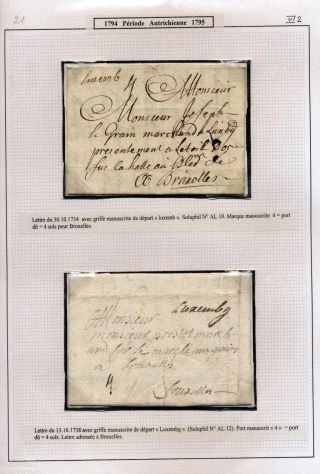 21
1794 Période Autrichienne 1795
VI 2
luxemb 4 A Monsieur
Monsieur Joseph
le Grain marchand a
presentement a
sur la halle au Bled
A Bruxelles
Lettre du 30.10.1734 avec griffe manuscrite de départ « luxemb ». Soluphil N° AL 10. Marque manuscrite 4 = port
dû = 4 sols pour Bruxelles.
A Monsieur Luxembg
monsieur
and sur le marché aux grains
a bruxelles
4 bruxelles
Lettre du 13.10.1738 avec griffe manuscrite de départ « Luxembg ». (Soluphil N° AL 12). Port manuscrit « 4 » = port
dû = 4 sols. Lettre adressée à Bruxelles.